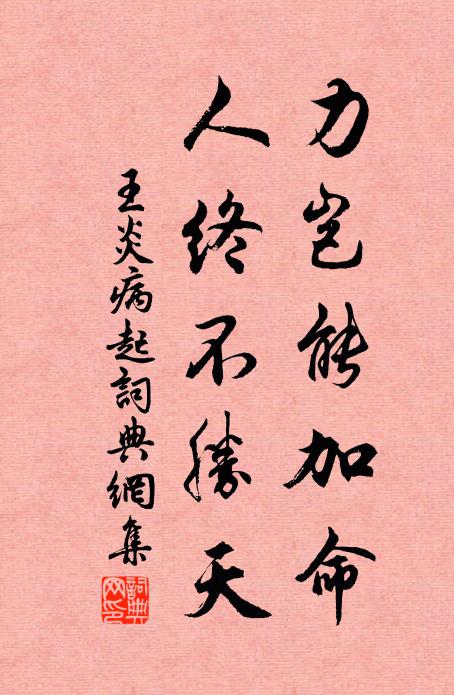 力岂能加命
人终不胜天
王炎病起詞典網集
詞典網印